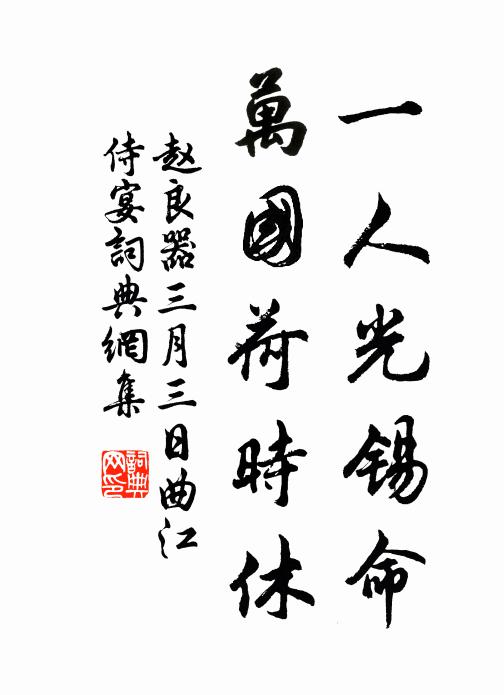 一人光锡命
萬國荷時休
赵良器三月三日曲江
侍宴詞典網集
詞典
网印